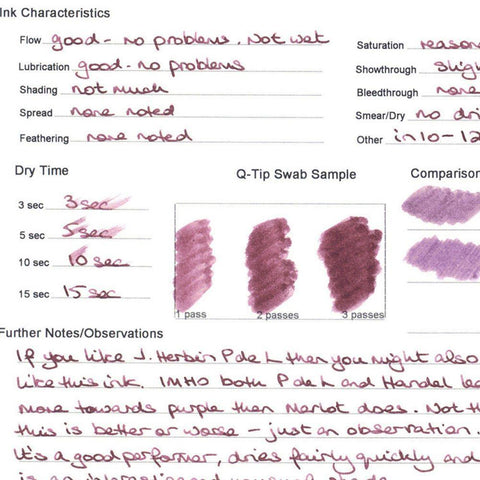 Ink Characteristics
Flow good - no problems. Not wet
Saturation
Lubrication good - no problems
Showthrough
Shading not much
Bleedthrough none
Spread none noted
Smear/Dry no
Feathering none noted
Other in 10-12
Dry Time
Q-Tip Swab Sample
Comparison
3 sec 3 sec
5 sec 5 sec
10 sec 10 sec
15 sec 15 sec
1 pass 2 passes 3 passes
Further Notes/Observations
If you like J. Herbin P de L then you might also
like this ink. IMHO both P de L and Handel
more towards purple then Merlot does. Not
this is better or worse - just an observation.
It's a good performer, dries fairly quickly and
is an interesting and unusual